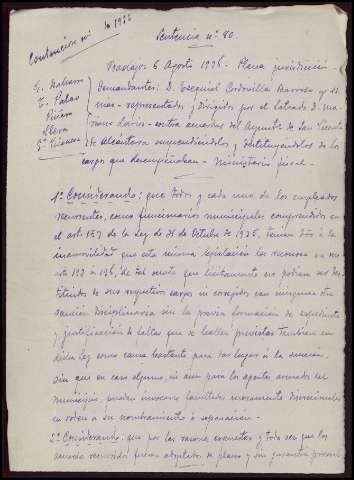 Contencioso nº de 1936
Sentencia nº 80.
Badajoz 6 Agosto 1936. Plena jurisdicción -
Demandantes: D. Ezequiel Cordovilla Barroso y
mas - representados y dirigidos por el letrado D.
contra acuerdos del Ayuntº de San Vicente
de Alcántara suspendiéndolos y destituyéndolos de los
cargos que desempeñaban - Ministerio fiscal -
1º Considerando: que todos y cada uno de los empleados
recurrentes, como funcionarios municipales comprendidos en
el artº 157 de la Ley de 31 de Octubre de 1935, tenian dro á la
inamovilidad que esta misma legislación les reconoce en sus
artos 192 á 196, de tal suerte que licitamente no podian ser des-
tituidos de sus respectivos cargos ni corregidos con ninguna otra
sanción disciplinaria sin la previa formación de expediente
y justificación de faltas que se hallen previstas tambien en
dicha Ley como causa bastante para dar lugar á la sanción,
sin que en caso alguno, ni aun para los agentes armados del
municipio, puedan invocarse facultades meramente discrecionales
en orden a su nombramiento ó separación. -
2º Considerando: que por las razones expuestas y toda vez que los
acuerdos recurridos fueron adoptados de plano y sin garantia